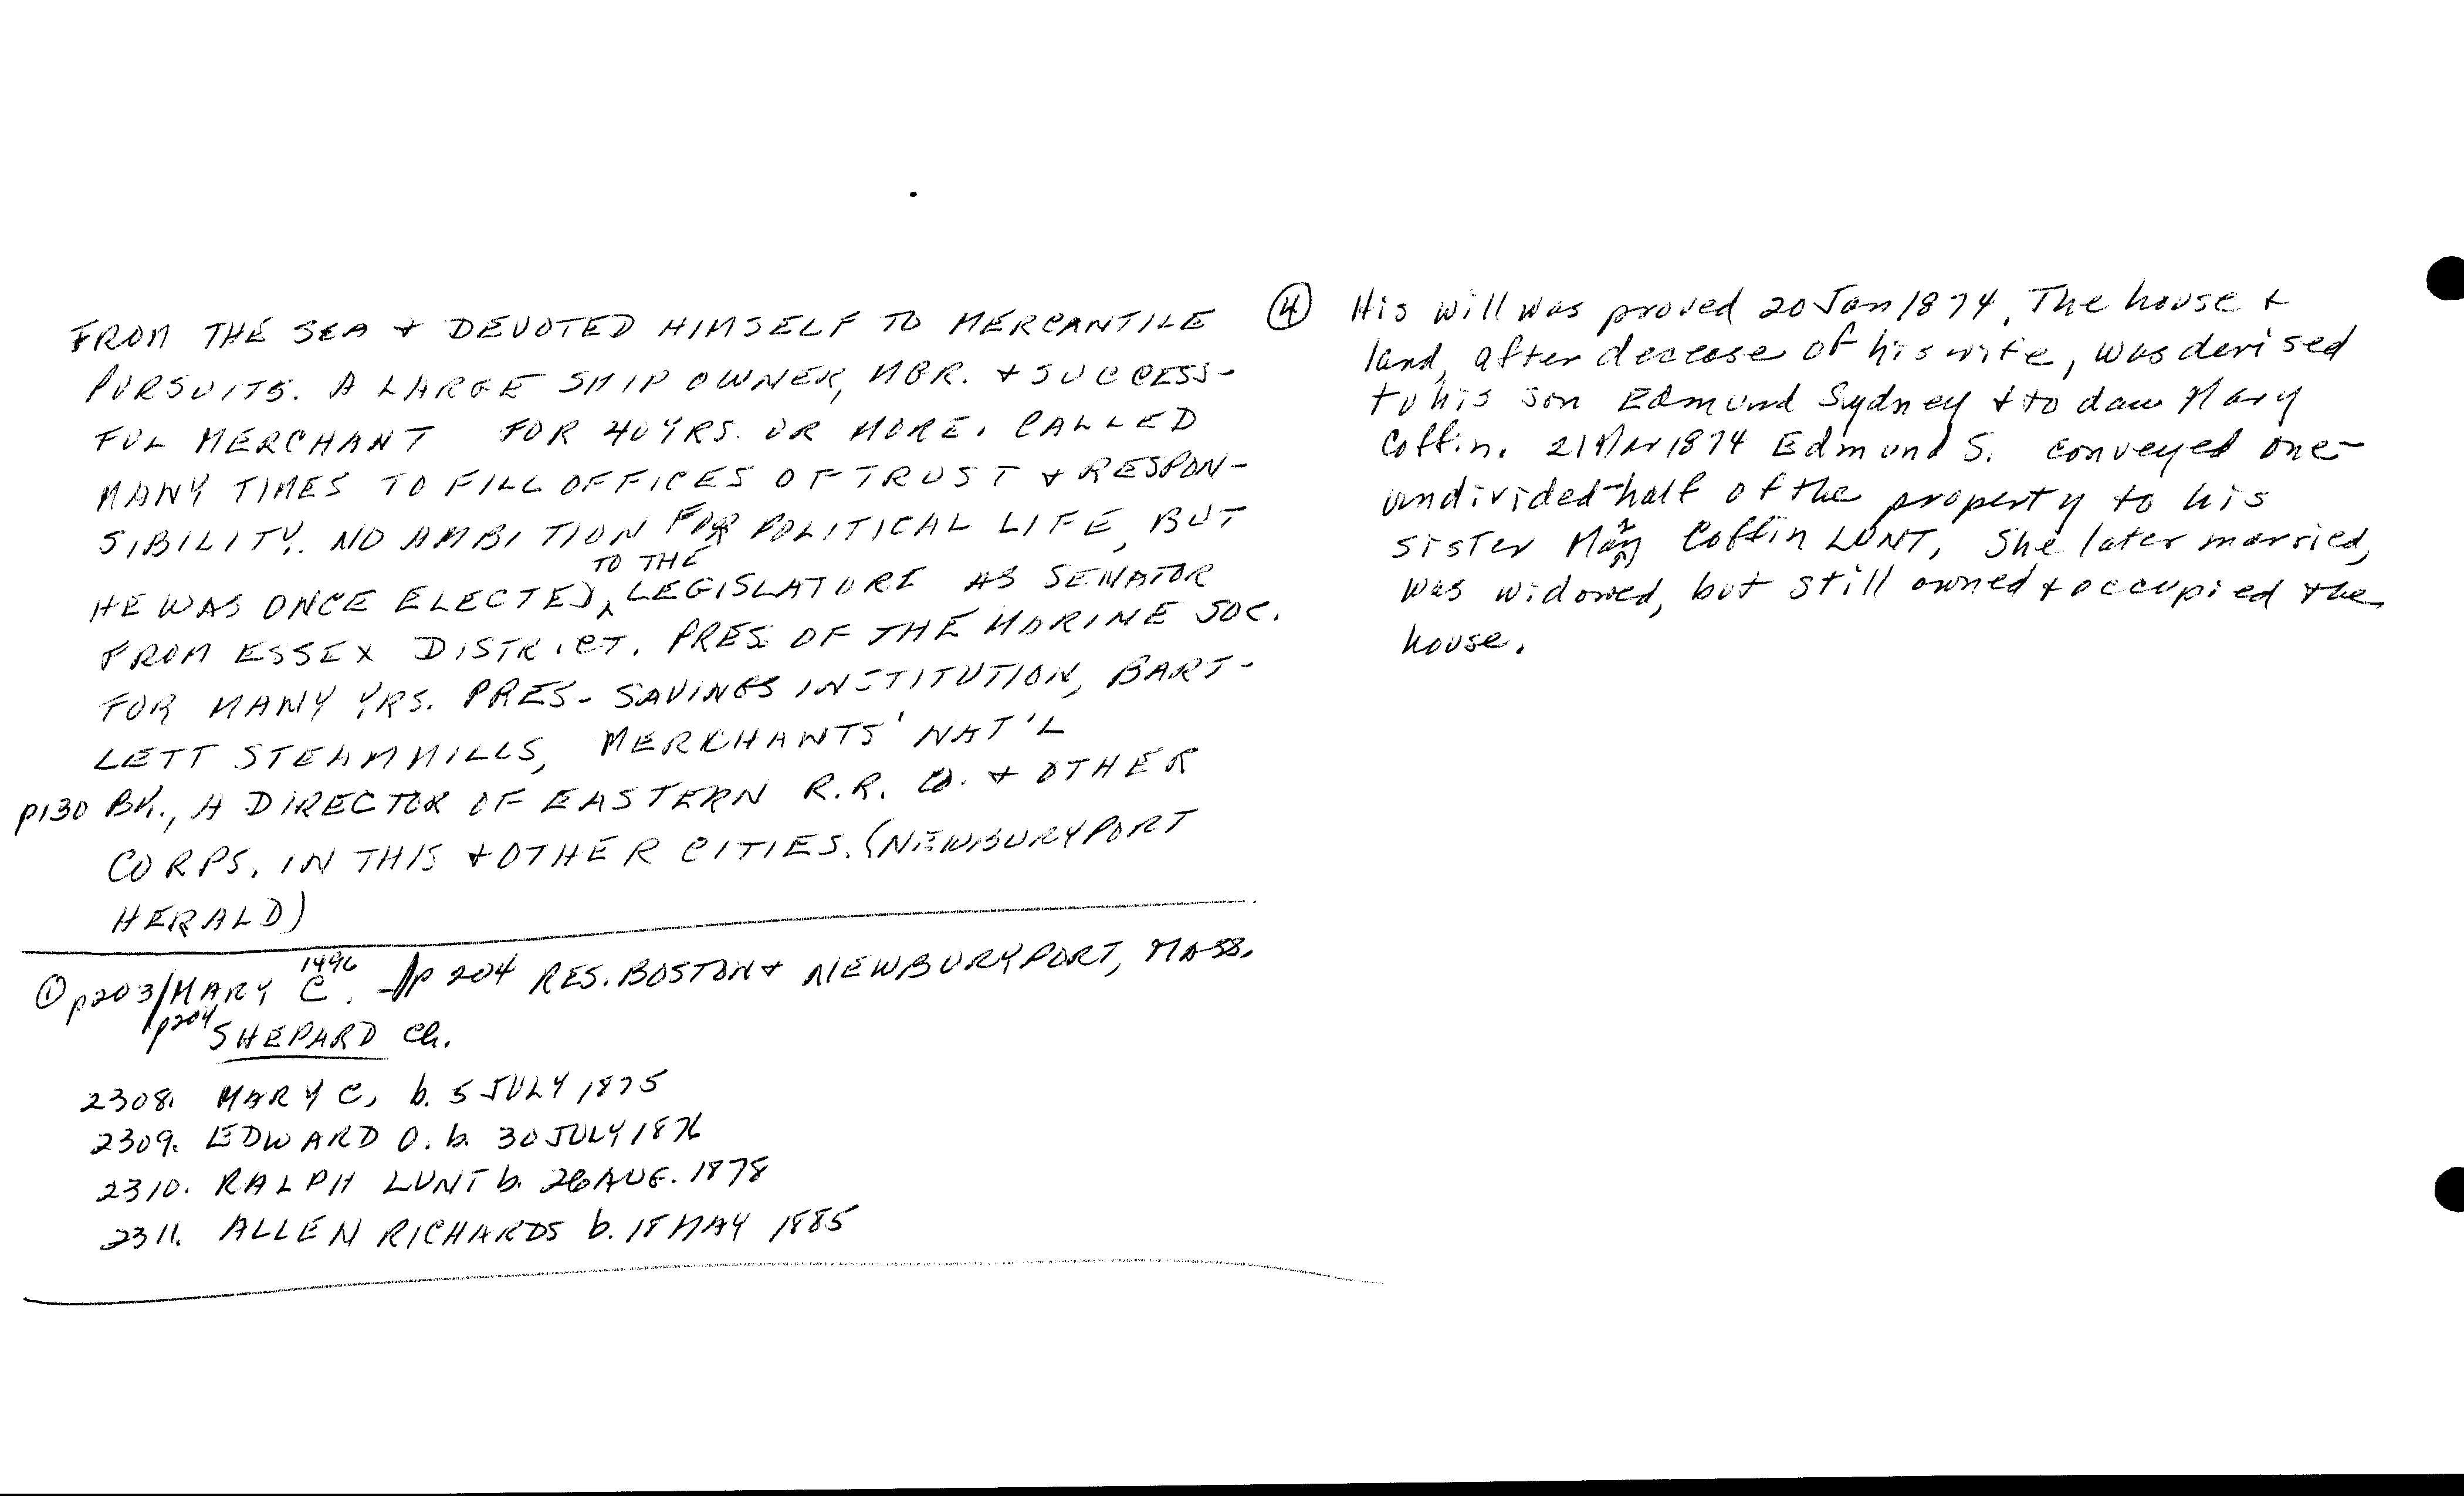 FROM THE SEA + DEVOTED HIMSELF TO MERCANTILE
PURSUITS. A LARGE SHIP OWNER, MBR. + SUCCESS-
FUL MERCHANT FOR 40 YRS. OR MORE. CALLED
MANY TIMES TO FILL OFFICES OF TRUST + RESPON-
SIBILITY. NO AMBITION FOR POLITICAL LIFE, BUT
HE WAS ONCE ELECTED TO THE LEGISLATURE AS SENATOR
FROM ESSEX DISTRICT. PRES. OF THE MARINE SOC.
FOR MANY YRS. PRES- SAVINGS INSTITUTION, BART-
LETT STEAM MILLS, MERCHANTS' NAT'L
p130 BK., A DIRECTOR OF EASTERN R.R. CO. + OTHER
CORPS. IN THIS + OTHER CITIES. (NEWBURYPORT
HERALD)
① p203/MARY C. 1496 p 204 RES. BOSTON + NEWBURYPORT, MASS.
p204 SHEPARD Ch.
2308. MARY C, b. 5 JULY 1875
2309. EDWARD O. b. 30 JULY 1876
2310. RALPH LUNT b. 26 AUG. 1878
2311. ALLEN RICHARDS b. 18 MAY 1885
④ His will was proved 20 Jan 1874. The house +
land, after decease of his wife, was devised
to his son Edmund Sydney + to dau Mary
Coffin. 21 Mar 1874 Edmund S. conveyed one-
undivided-half of the property to his
sister Mary Coffin LUNT. She later married,
was widowed, but still owned + occupied the
house.